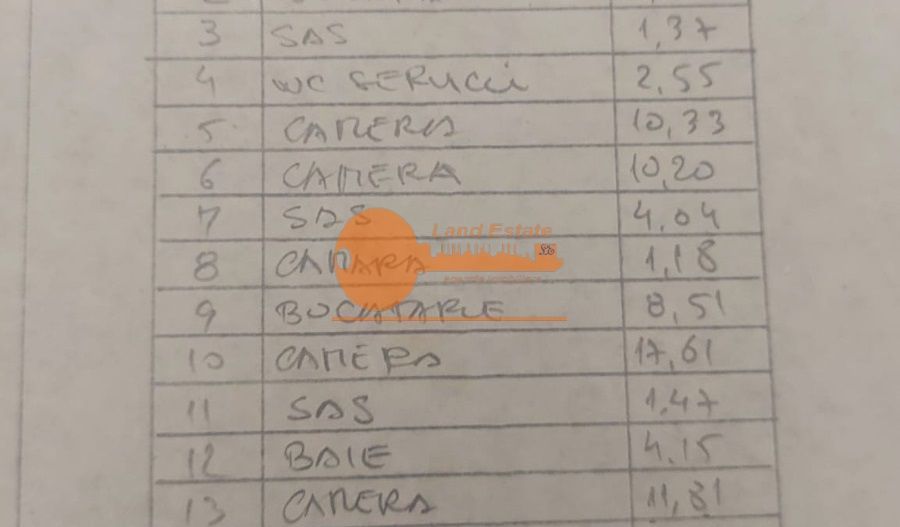 3 SAS 1,37
4 WC SERVICII 2,55
5 CAMERA 10,33
6 CAMERA 10,20
7 SAS 4,04
Land Estate
8 CAMARA 1,18
9 BUCATARIE 8,51
10 CAMERA 17,61
11 SAS 1,47
12 BAIE 4,15
13 CAMERA 11,81